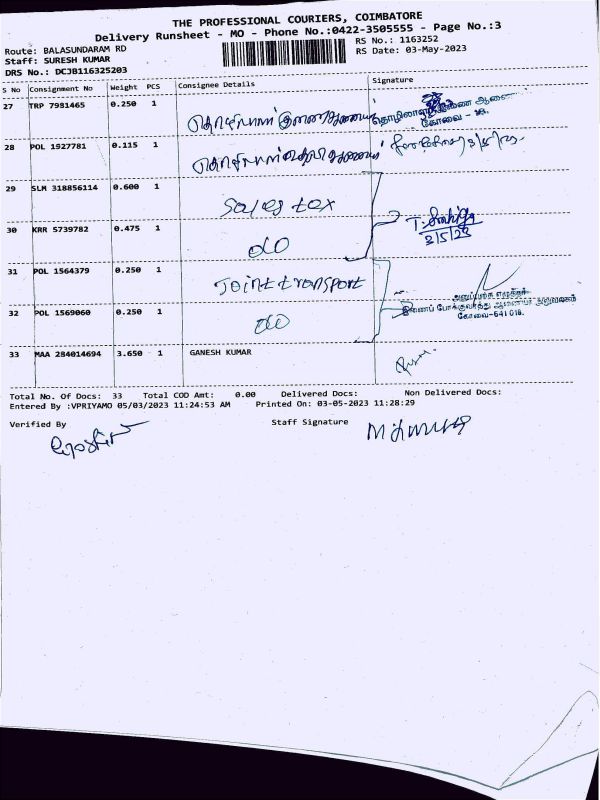 THE PROFESSIONAL COURIERS, COIMBATORE
Delivery Runsheet - MO - Phone No.:0422-3505555 - Page No.:3
Route: BALASUNDARAM RD
RS No.: 1163252
Staff: SURESH KUMAR
RS Date: 03-May-2023
DRS No.: DCJB116325203
S No Consignment No Weight PCS Consignee Details Signature
27 TRP 7981465 0.250 1
கோவை - 18.
28 POL 1927781 0.115 1 3/5/23
29 SLM 318856114 0.600 1 Sales tax
30 KRR 5739782 0.475 1 do
3/5/23
31 POL 1564379 0.250 1 Joint transport
இணைப் போக்குவரத்து ஆணையர் அலுவலகம்
கோவை-641 018.
32 POL 1569060 0.250 1 do
33 MAA 284014694 3.650 1 GANESH KUMAR
Total No. Of Docs: 33 Total COD Amt: 0.00 Delivered Docs: Non Delivered Docs:
Entered By :VPRIYAMO 05/03/2023 11:24:53 AM Printed On: 03-05-2023 11:28:29
Verified By Staff Signature